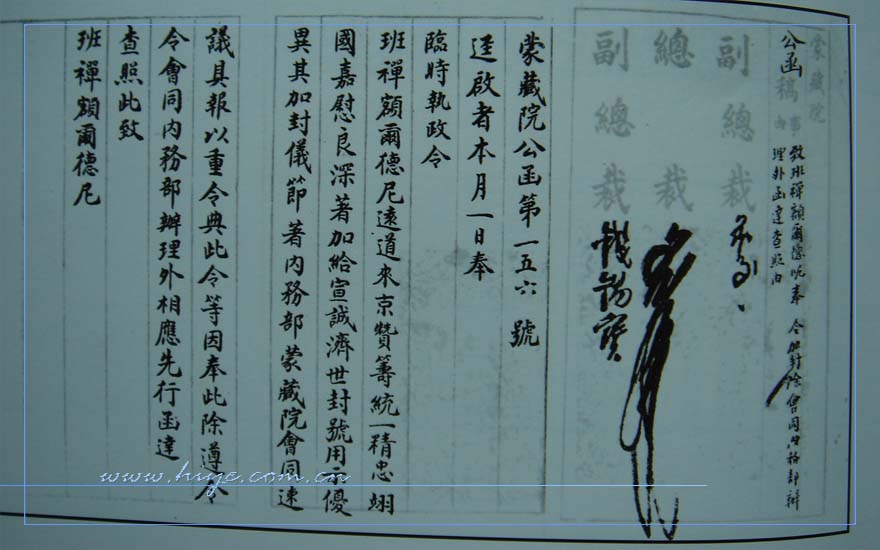 蒙藏院
公函稿
事由
致班禪額爾德呢奉 令加封除會同內務部辦
理外函達查照由
副總裁
總裁
副總裁 錢錫寶
蒙藏院公函第一五六號
逕啟者本月一日奉
臨時執政令
班禪額爾德尼遠道來京贊籌統一精忠翊
國嘉慰良深著加給宣誠濟世封號用示優
異其加封儀節著內務部蒙藏院會同速
議具報以重令典此令等因奉此除遵令
令會同內務部辦理外相應先行函達
查照此致
班禪額爾德尼
www.huye.com.cn